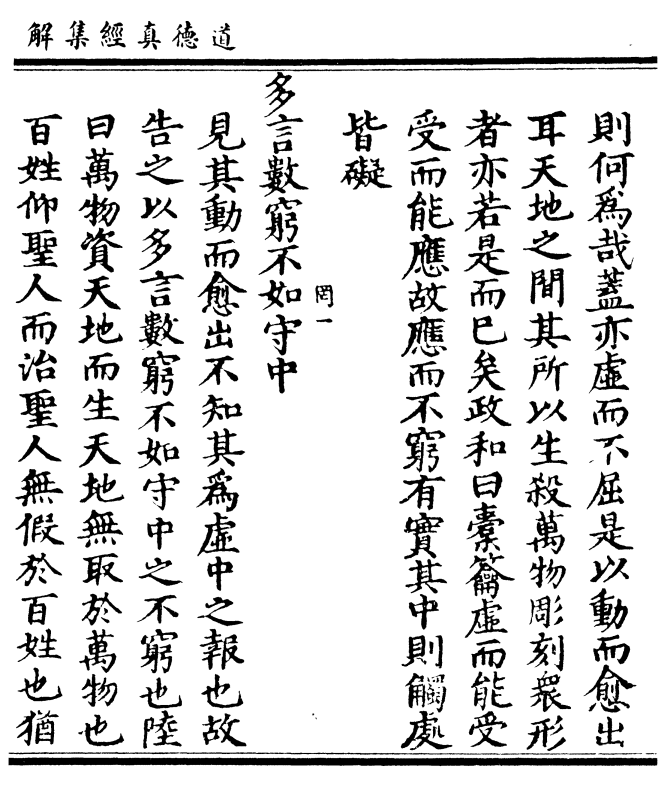 道德真經集解
則何爲哉蓋亦虛而不屈是以動而愈出
耳天地之間其所以生殺萬物彫刻衆形
者亦若是而已矣政和曰橐籥虛而能受
受而能應故應而不窮有實其中則觸處
皆礙
罔一
多言數窮不如守中
見其動而愈出不知其爲虛中之報也故
告之以多言數窮不如守中之不窮也陸
曰萬物資天地而生天地無取於萬物也
百姓仰聖人而治聖人無假於百姓也猶